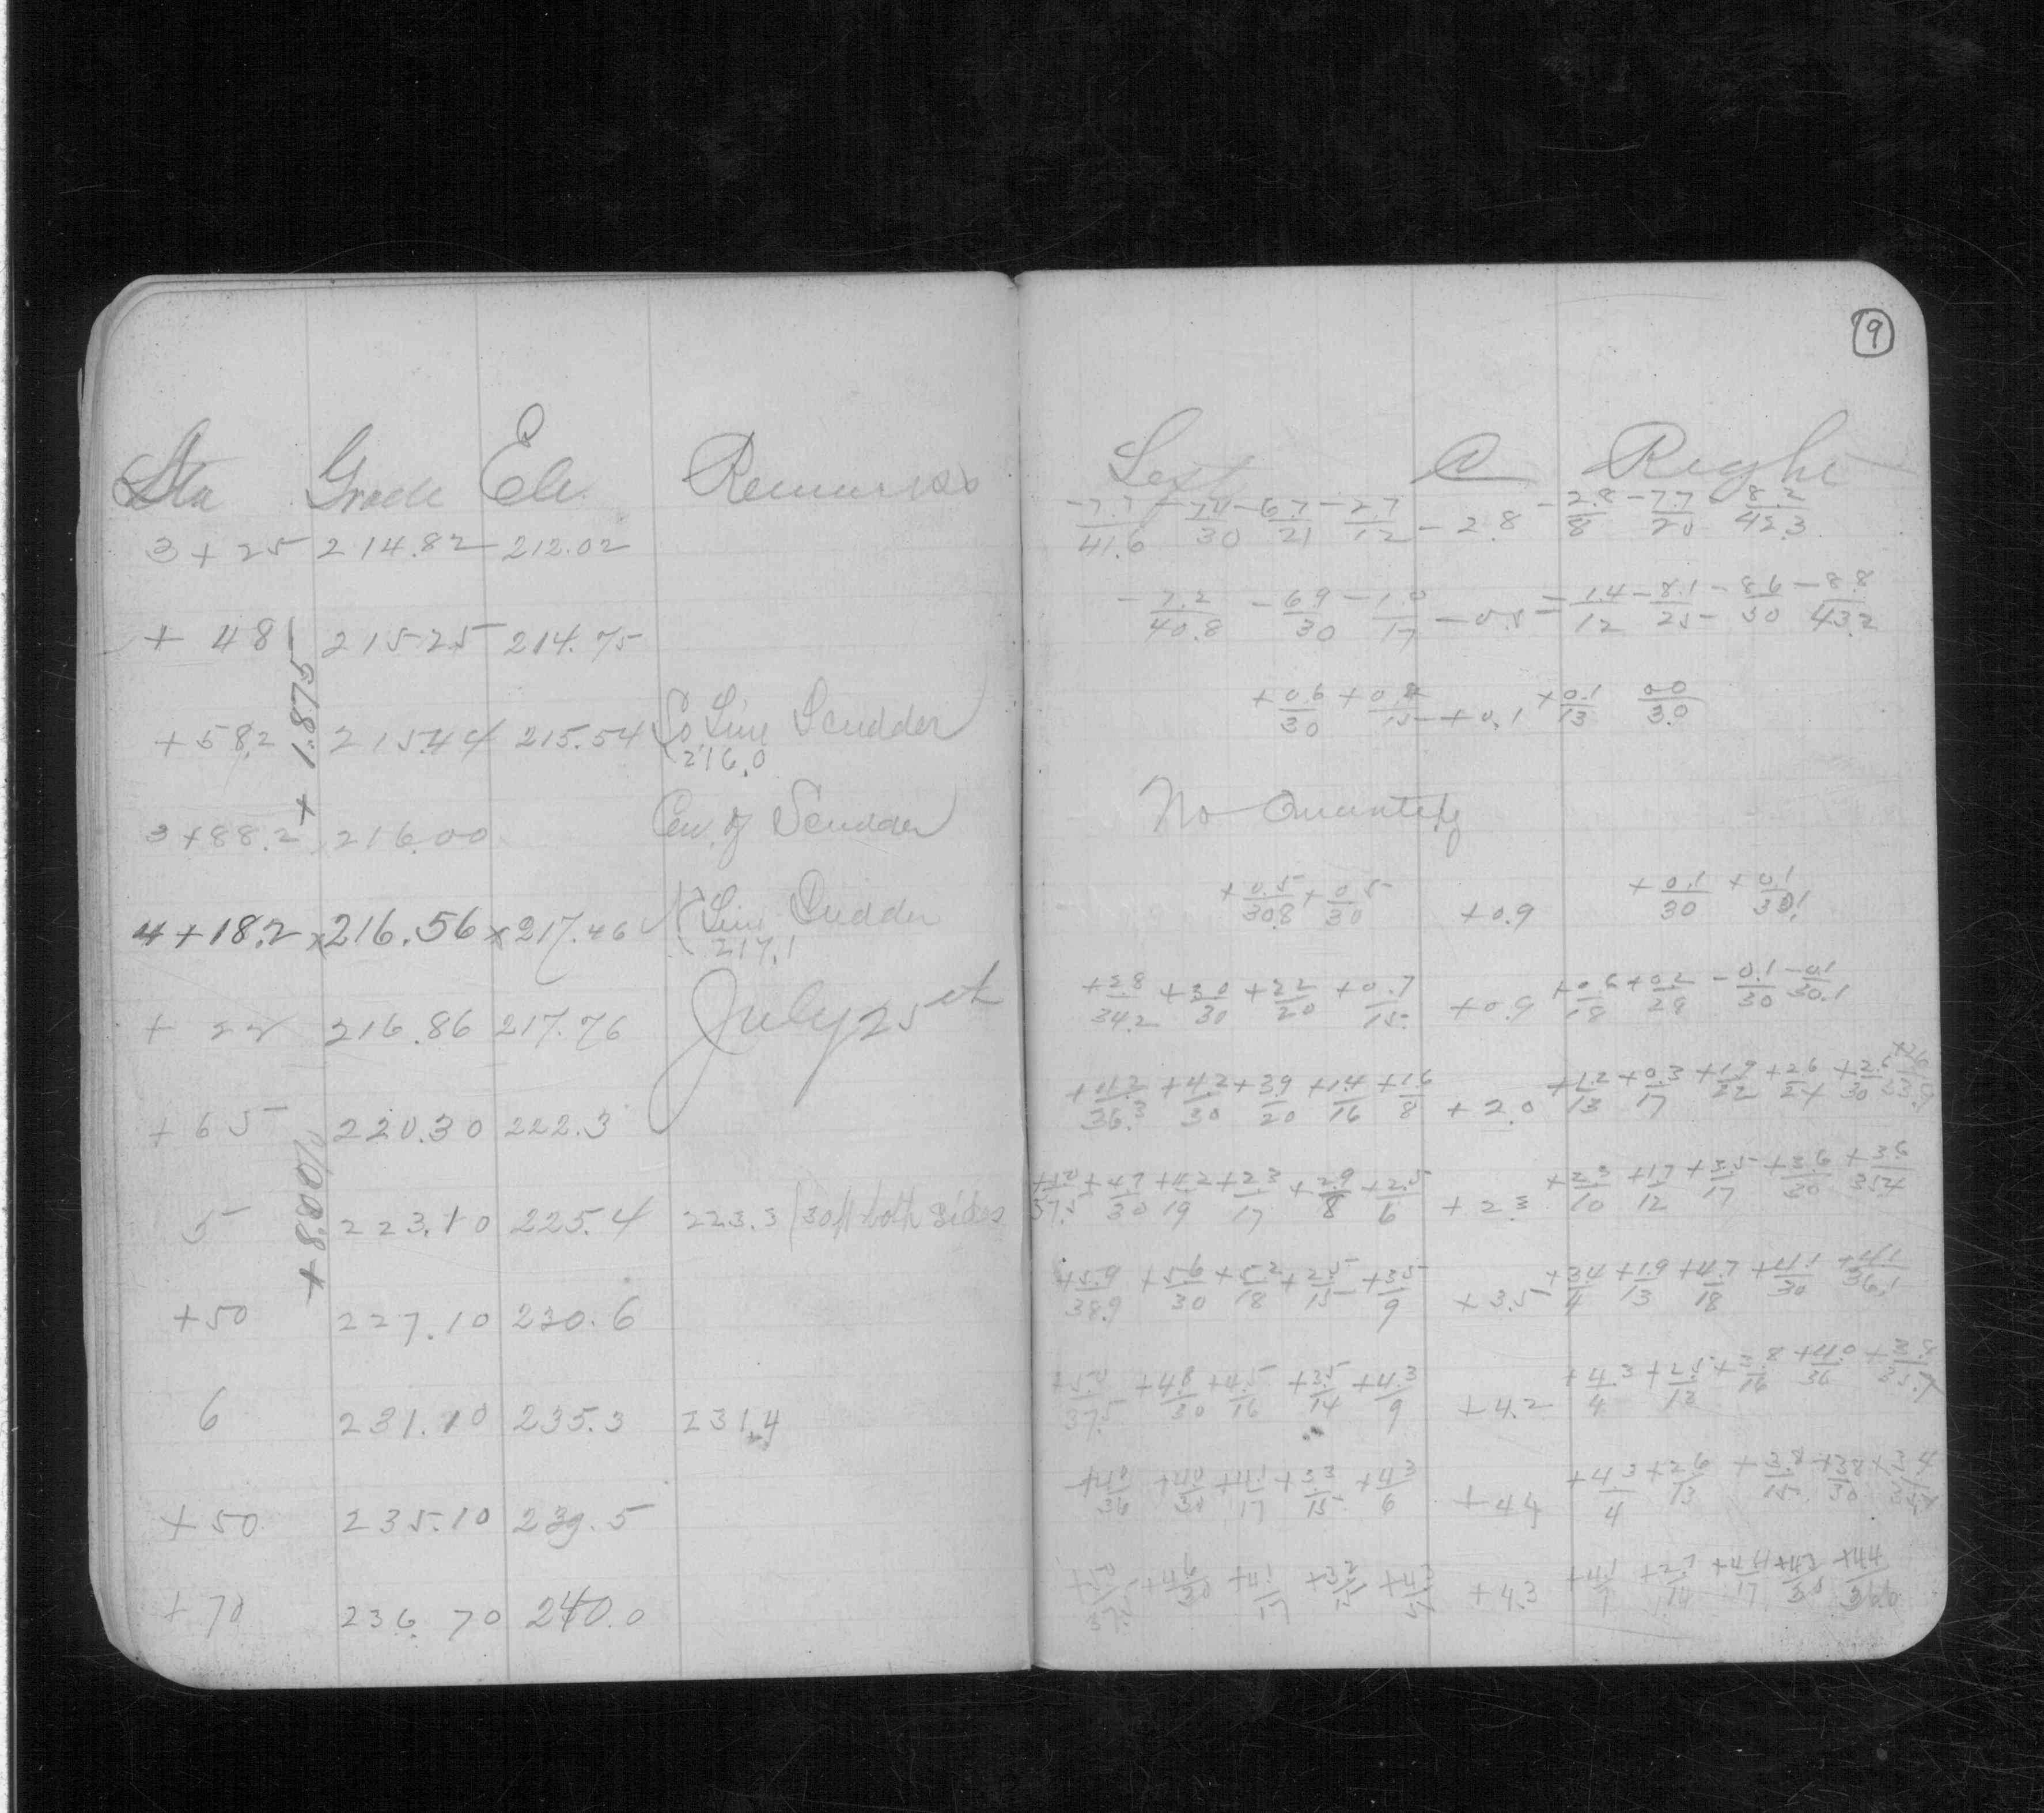 9
Sta Grade Ele. Remarks
3 + 25 214.82 212.02
+ 48 215.25 214.75
+ 1.875
+ 58.2 215.44 215.54 So Line Scudder
216.0
3 + 88.2 216.00 Cen. of Scudder
4 + 18.2 x 216.56 x 217.46 N Line Scudder
217.1
+ 22 216.86 217.76 July 25th
+ 65 220.30 222.3
+ 8.00%
5 223.10 225.4 223.3 30ft both sides
+ 50 227.10 230.6
6 231.10 235.3 231.4
+ 50 235.10 239.5
+ 70 236.70 240.0
Left C Right
-7.7/41.6 -7.4/30 -6.7/21 -2.7/12 -2.8 -2.8/8 -7.7/25 8.2/42.3
-7.2/40.8 -6.9/30 -1.0/17 -0.5 -1.4/12 -8.1/25 -8.6/30 -8.8/43.2
+0.6/30 +0.4/15 +0.1 +0.1/13 0.0/30
No Quantity
+0.5/30.8 +0.5/30 +0.9 +0.1/30 +0.1/30.1
+2.8/34.2 +3.0/30 +2.2/20 +0.7/15 +0.9 +0.6/18 +0.2/28 -0.1/30 -0.1/30.1
+4.2/36.3 +4.2/30 +3.9/20 +1.4/16 +1.6/8 +2.0 +1.2/13 +0.3/17 +1.9/22 +2.6/24 +2.6/30
+4.7/30 +4.2/19 +2.3/17 +2.9/8 +2.5/6 +2.3 +2.3/10 +1.7/12 +3.5/17 +3.6/30 +3.6/35.4
+5.9/38.9 +5.6/30 +5.2/18 +2.5/15 +3.5/9 +3.5 +3.4/4 +1.9/13 +4.7/18 +4.1/30 +4.1/36.1
+5.0/37.5 +4.8/30 +4.5/16 +3.5/14 +4.3/9 +4.2 +4.3/4 +2.5/13 +3.8/16 +4.0/30
+4.0/36 +4.0/30 +4.1/17 +3.3/15 +4.3/6 +4.4 +4.3/4 +2.6/13 +3.8/15 +3.8/30
+4.6/30 +4.1/17 +3.2/15 +4.3/5 +4.3 +4.1/7 +2.7/14 +4.4/17 +4.3/30 +4.4/36.6